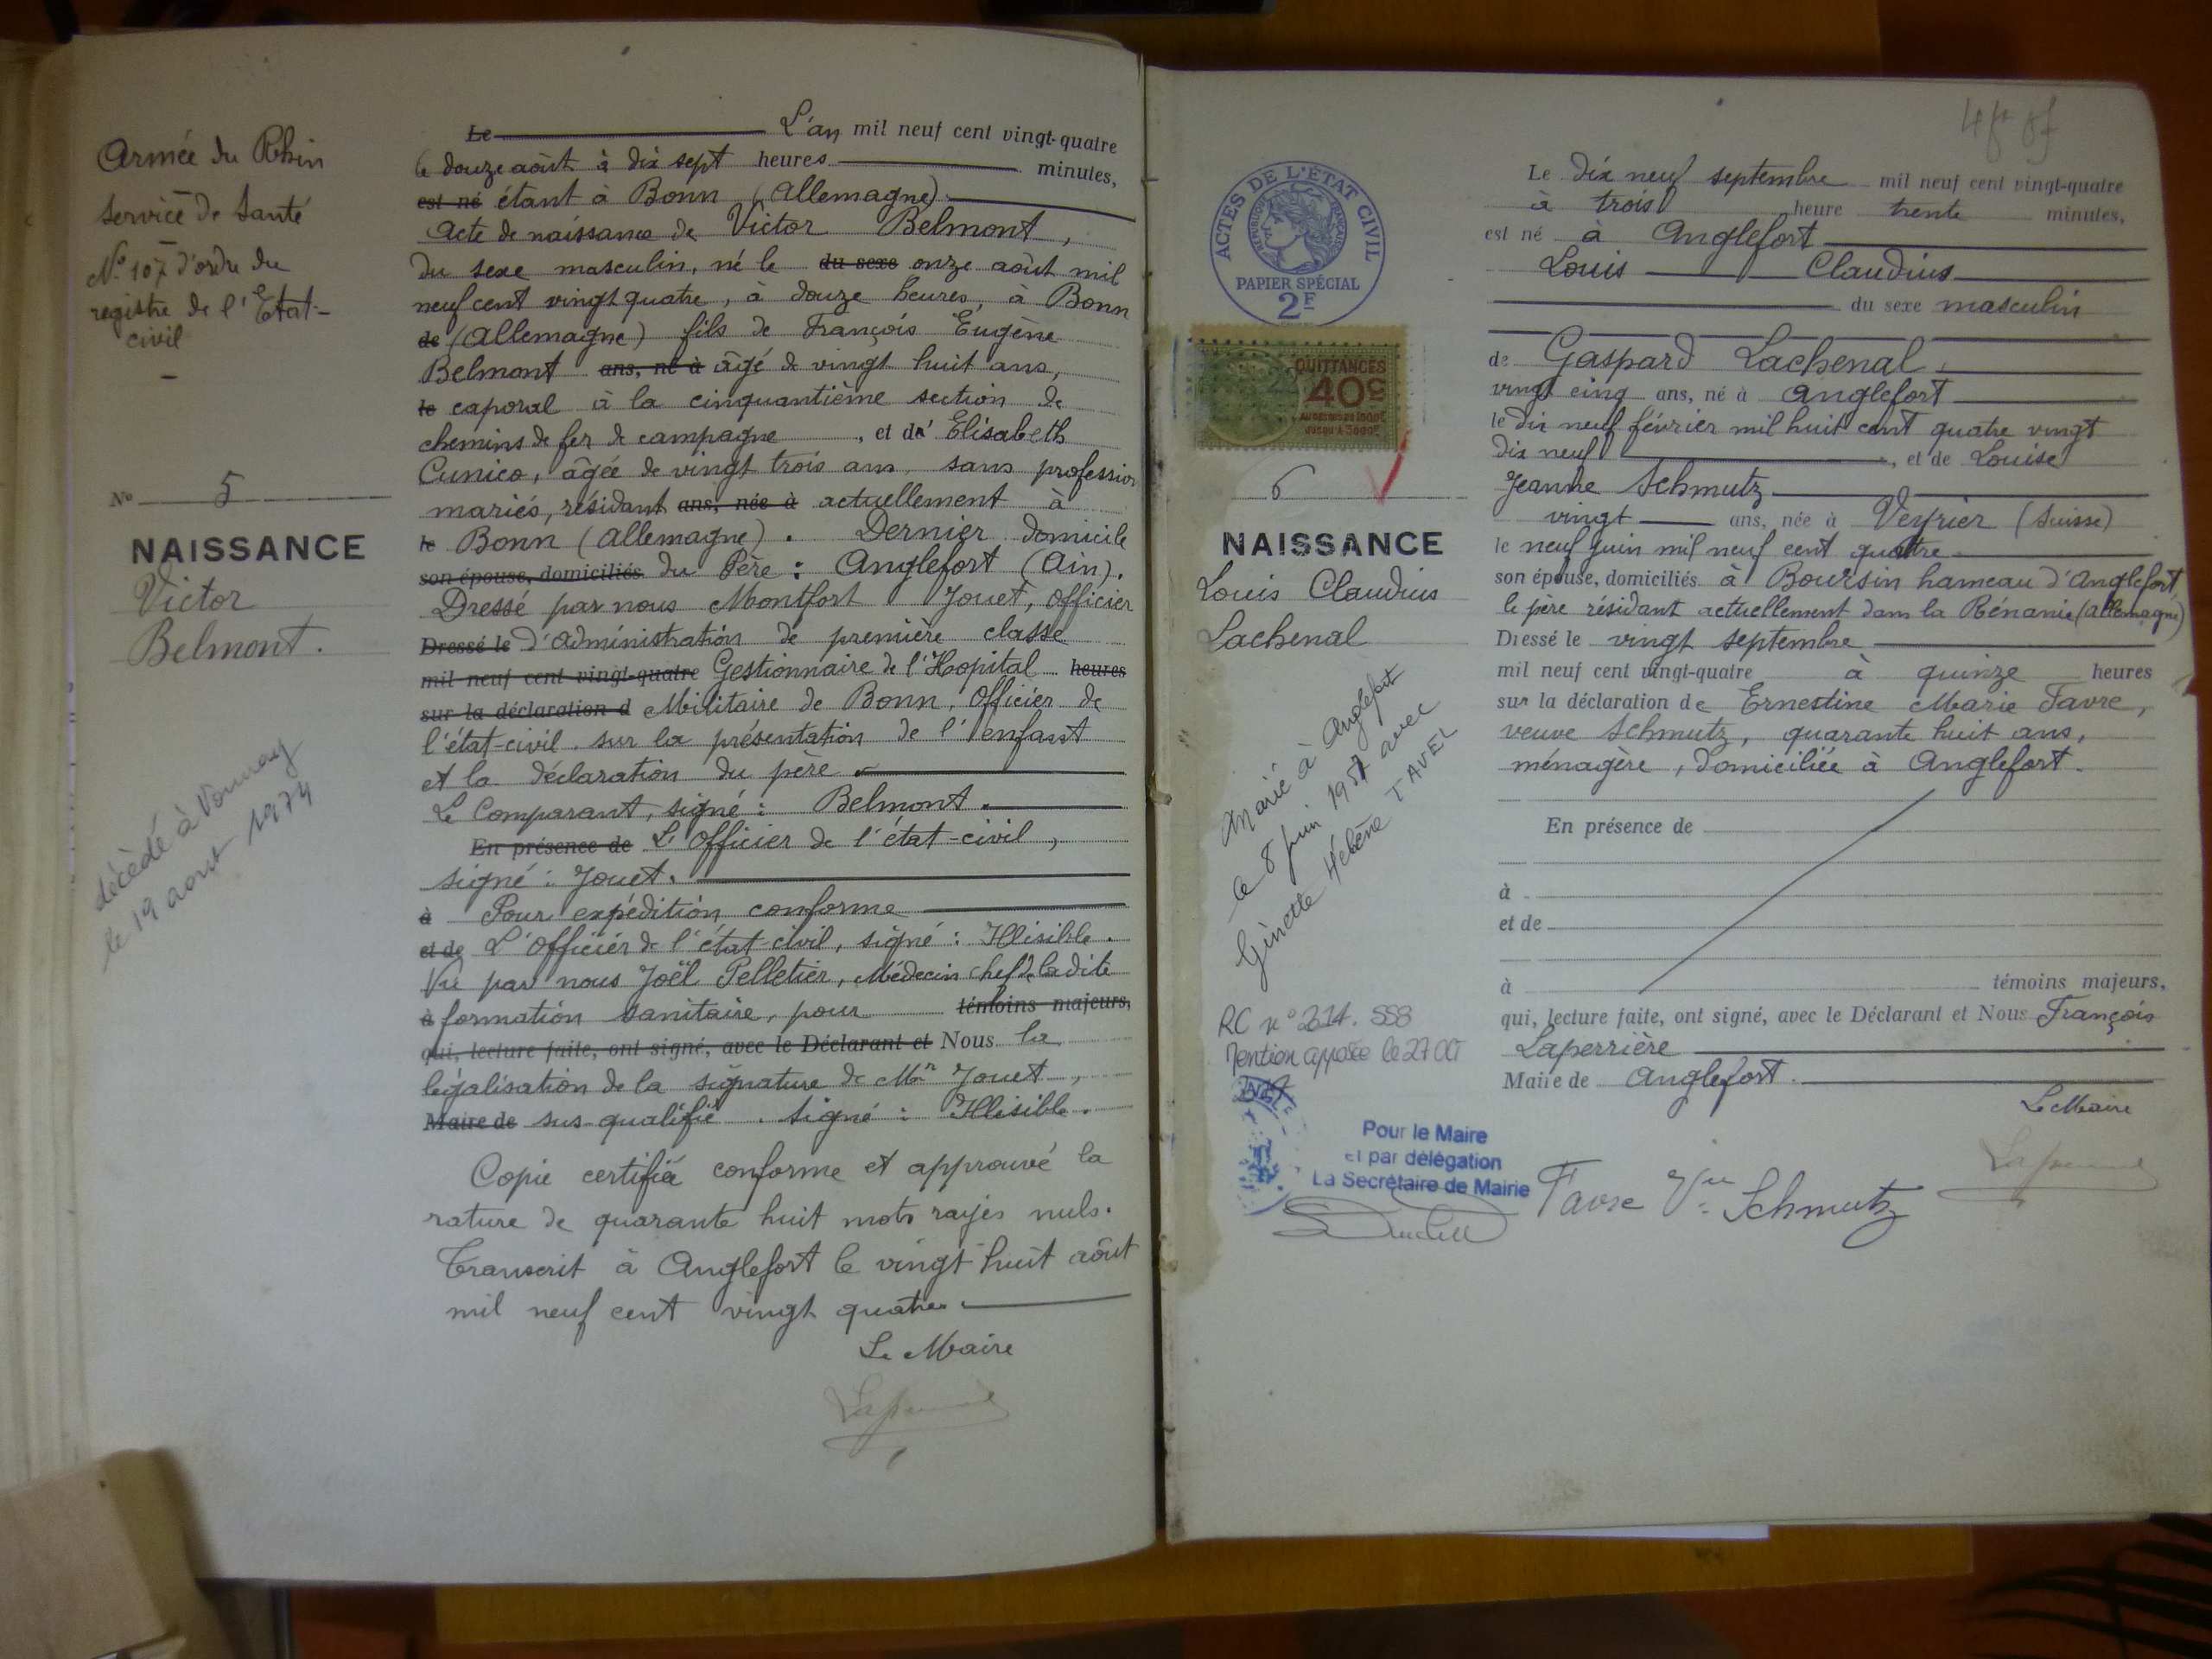 Armée du Rhin
Service de Santé
No 107 d'ordre du
registre de l'Etat-
civil
No 5
NAISSANCE
Victor
Belmont.
décédé à Vonnay
le 19 aout 1974
Le L'an mil neuf cent vingt-quatre
le douze août à dix sept heures minutes,
est né étant à Bonn (Allemagne)
Acte de naissance de Victor Belmont,
du sexe masculin, né le du sexe onze août mil
neuf cent vingt quatre, à douze heures, à Bonn
de (Allemagne) fils de François Eugène
Belmont ans, né à âgé de vingt huit ans,
le caporal à la cinquantième section de
chemins de fer de campagne, et d' Elisabeth
Cunico, âgée de vingt trois ans, sans profession
mariés, résidant ans, née à actuellement à
le Bonn (Allemagne). Dernier domicile
son épouse, domiciliés du Père : Anglefort (Ain).
Dressé par nous Montfort Jouet, Officier
Dressé le d'administration de première classe
mil neuf cent vingt-quatre Gestionnaire de l'Hopital heures
sur la déclaration d Militaire de Bonn, Officier de
l'état-civil sur la présentation de l'enfant
et la déclaration du père
Le Comparant, signé : Belmont.
En présence de L'Officier de l'état-civil,
signé : Jouet.
à Pour expédition conforme
et de L'Officier de l'état-civil, signé : Illisible.
Vu par nous Joël Pelletier, Médecin chef de ladite
à formation sanitaire, pour témoins majeurs,
qui, lecture faite, ont signé, avec le Déclarant et Nous la
légalisation de la signature de Mr Jouet,
Maire de sus-qualifié. Signé : Illisible.
Copie certifiée conforme et approuvé la
rature de quarante huit mots rayés nuls.
Transcrit à Anglefort le vingt huit août
mil neuf cent vingt quatre.
Le Maire
ACTES DE L'ETAT CIVIL
REPUBLIQUE FRANÇAISE
PAPIER SPÉCIAL
2F
QUITTANCES
40c
6
NAISSANCE
Louis Claudius
Lachenal
Marié à Anglefort
le 8 juin 1957 avec
Ginette Hélène TAVEL
RC no 314. 558
Mention apposée le 27 Oct
Pour le Maire
et par délégation
La Secrétaire de Mairie
Le dix neuf septembre mil neuf cent vingt-quatre
à trois heure trente minutes,
est né à Anglefort
Louis Claudius
du sexe masculin
de Gaspard Lachenal,
vingt cinq ans, né à Anglefort
le dix neuf février mil huit cent quatre vingt
dix neuf, et de Louise
Jeanne Schmutz
vingt ans, née à Veyrier (Suisse)
le neuf juin mil neuf cent quatre
son épouse, domiciliés à Boursin hameau d'Anglefort,
le père résidant actuellement dans la Rénanie (Allemagne)
Dressé le vingt septembre
mil neuf cent vingt-quatre à quinze heures
sur la déclaration de Ernestine Marie Favre,
veuve Schmutz, quarante huit ans,
ménagère, domiciliée à Anglefort.
En présence de
à
et de
à témoins majeurs,
qui, lecture faite, ont signé, avec le Déclarant et Nous François
Laperrière
Maire de Anglefort.
Le Maire
Favre Vve Schmutz